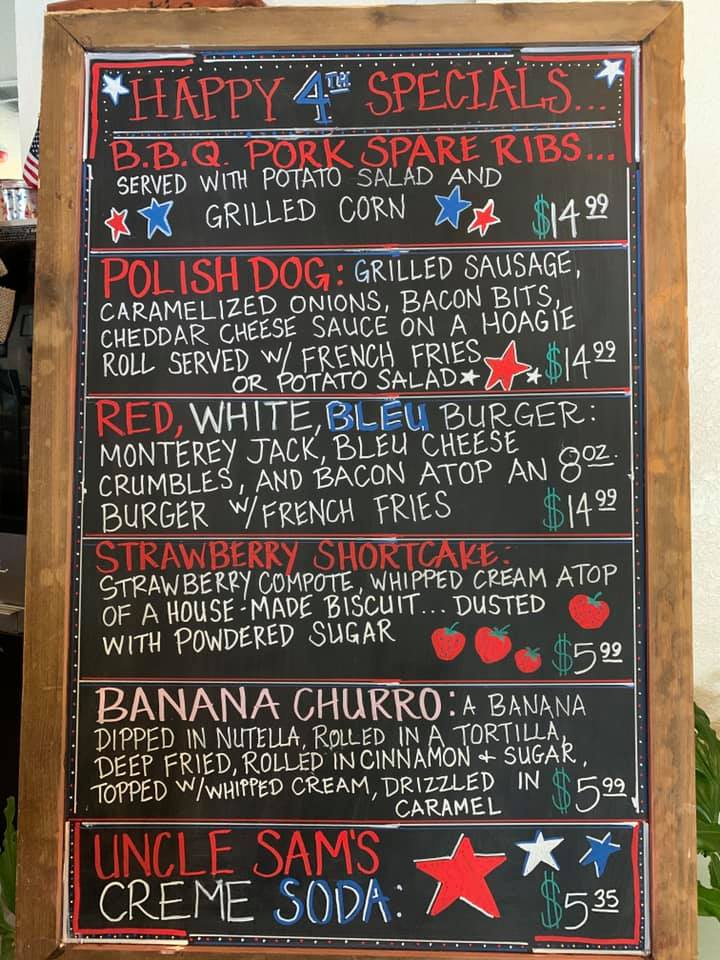 HAPPY 4TH SPECIALS...
B.B.Q. PORK SPARE RIBS...
SERVED WITH POTATO SALAD AND
GRILLED CORN $14.99
POLISH DOG: GRILLED SAUSAGE,
CARAMELIZED ONIONS, BACON BITS,
CHEDDAR CHEESE SAUCE ON A HOAGIE
ROLL SERVED W/ FRENCH FRIES
OR POTATO SALAD $14 99
RED, WHITE, BLEU BURGER:
MONTEREY JACK, BLEU CHEESE
CRUMBLES, AND BACON ATOP AN 8OZ.
BURGER W/FRENCH FRIES $14 99
STRAWBERRY SHORTCAKE:
STRAWBERRY COMPOTE, WHIPPED CREAM ATOP
OF A HOUSE-MADE BISCUIT... DUSTED
WITH POWDERED SUGAR $5 99
BANANA CHURRO: A BANANA
DIPPED IN NUTELLA, ROLLED IN A TORTILLA,
DEEP FRIED, ROLLED IN CINNAMON + SUGAR,
TOPPED W/WHIPPED CREAM, DRIZZLED IN
CARAMEL $5 99
UNCLE SAM'S
CREME SODA: $5 35